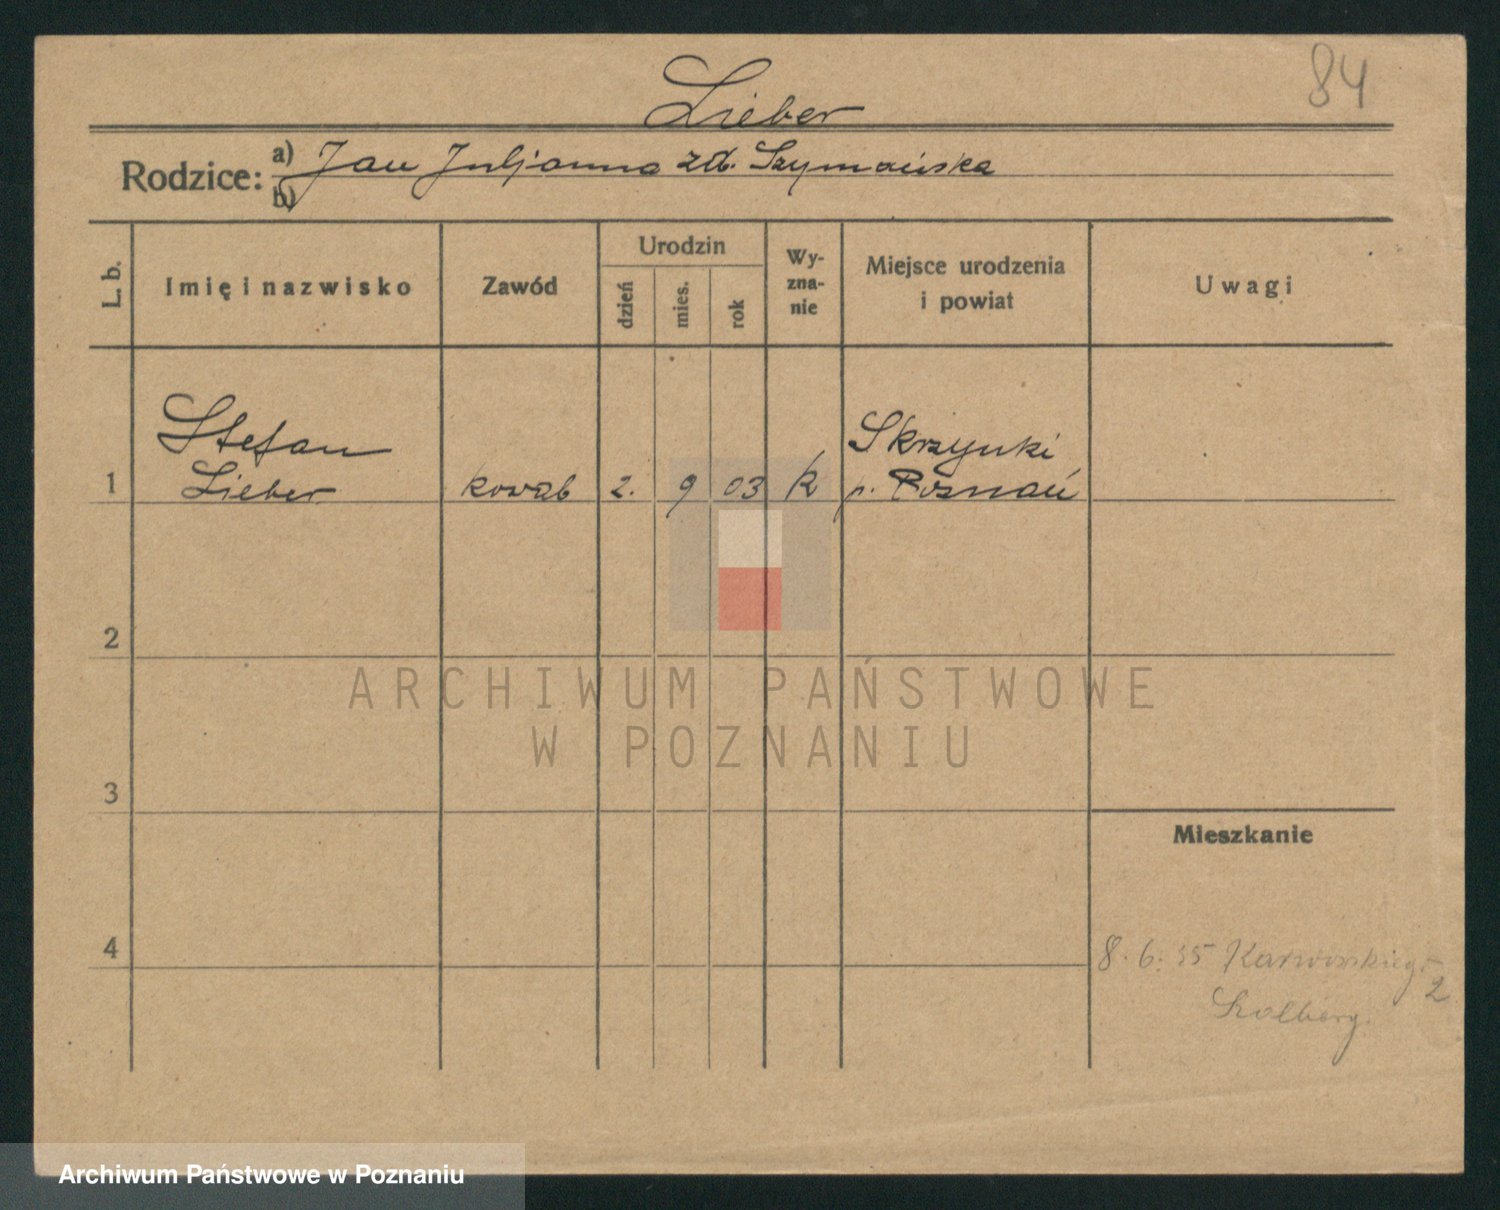 84
Lieber
Rodzice: a) Jan Juljanna zd. Szymańska
b)
L. b. Imię i nazwisko Zawód Urodzin dzień mies. rok Wy-zna-nie Miejsce urodzenia i powiat Uwagi
Stefan Skrzynki
1 Lieber kowal 2. 9 03 k p. Poznań
2
ARCHIWUM PAŃSTWOWE
W POZNANIU
3
Mieszkanie
4 8. 6. 2
Archiwum Państwowe w Poznaniu